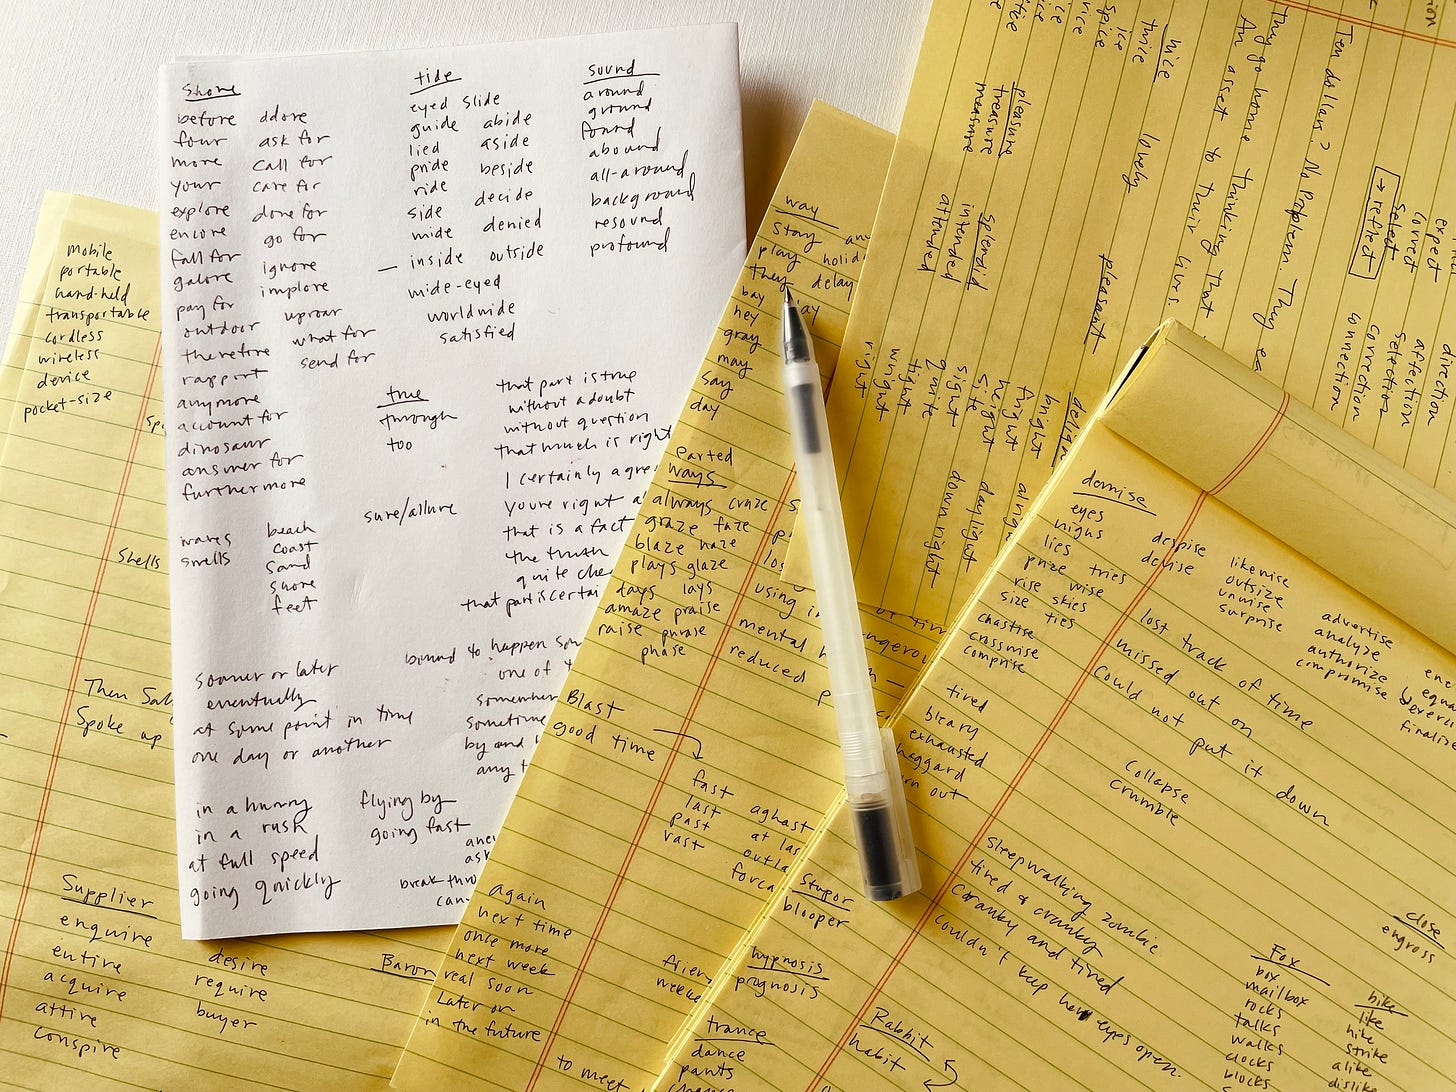 mobile
portable
hand-held
transportable
cordless
wireless
device
pocket-size
Shells
Then
Spoke up
Supplier
enquire
entire
acquire
attire
conspire
desire
require
buyer
Baron
Shore
before adore
four ask for
more call for
your care for
explore done for
encore go for
fall for ignore
galore implore
pay for uproar
outdoor what for
therefore send for
rapport
anymore
account for
dinosaur
answer for
furthermore
waves beach
smells coast
sand
shore
feet
tide
eyed slide
guide abide
lied aside
pride beside
ride decide
side denied
wide
— inside outside
wide-eyed
worldwide
satisfied
sound
around
ground
found
abound
all-around
background
resound
profound
true
through
too
sure/allure
that part is true
without a doubt
without question
that much is right
I certainly agre
you're right a
that is a fact
the truth
quite
that part is certai
sooner or later
eventually
at some point in time
one day or another
bound to happen
one of
somewher
sometime
by and
any t
in a hurry
in a rush
at full speed
going quickly
flying by
going fast
break thro
can
way
stay
play holid
they delay
bay
hey
gray
may
say
day
parted
ways
always craze
graze faze
blaze haze
plays glaze
days lays
amaze praise
raise phrase
phase
using
mental
reduced
Blast
good time
fast aghast
last at las
past outla
vast forca
again
next time
once more
next week
real soon
Later on
in the future
to meet
Ten dollars? No Problem. They ea
They go home thinking that
An asset to their lives.
nice lovely pleasant
twice
ice
spice
vice
pleasure
treasure
measure
splendid
intended
attended
expect
correct
select
→ reflect
direction
affection
selection
correction
connection
delight
bright
fright
height
site
sight
quite
tight
wright
right
daylight
downright
demise
eyes
highs
lies tries
prize wise
rise skies
size ties
chastise
crosswise
comprise
despise
devise
likewise
outsize
unwise
surprise
advertise
analyze
authorize
compromise
exerci
finalize
lost track of time
missed out on
Could not put it down
tired
bleary
exhausted
haggard
collapse
crumble
sleepwalking zombie
tired & cranky
Cranky and tired
Couldn't keep her eyes open.
Stupor
blooper
hypnosis
prognosis
trance
dance
pants
Rabbit
habit
close
engross
Fox
box
mailbox
rocks
talks
walks
clocks
blocks
bike
like
hike
strike
alike
dislike